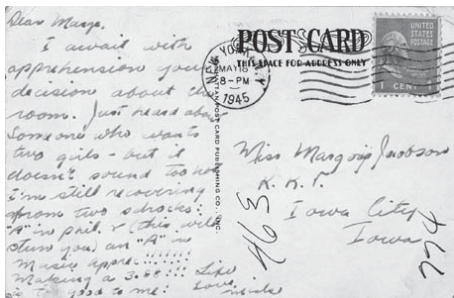 Dear Marge,
I await with
apprehension your
decision about the
room. Just heard about
someone who wants
two girls - but it
doesn't sound too
I'm still recovering
from two shocks:
"A" in phil. & (this will
stun you) an "A" in
Music Appre. !!!!!!
Making a 3.88!!!!!! Life
is too good to me!
Love,
POST CARD
THIS SPACE FOR ADDRESS ONLY
NEW YORK, N.Y.
MAY 18
8-PM
1945
UNITED
STATES
POSTAGE
1 CENT
POST CARD PUBLISHING CO., INC.
Miss Margorie Jacobson
Iowa City
Iowa
463
774